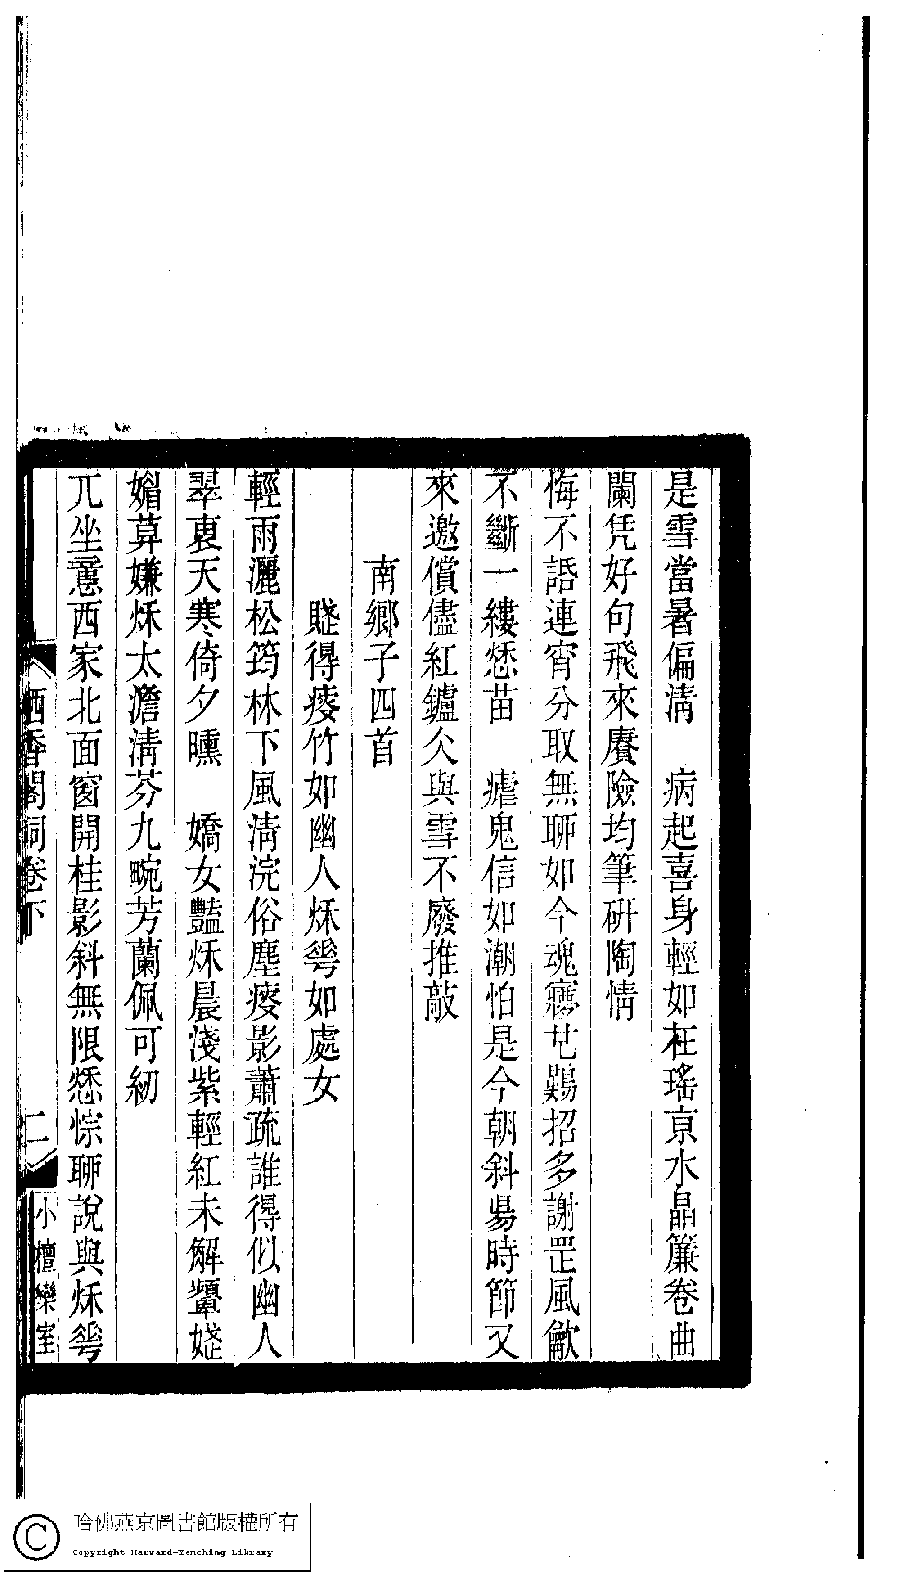 是雪當暑偏淸　病起喜身輕如在瑤京水晶簾卷曲
闌凭好句飛來賡險均筆硏陶情
悔不語連宵分取無聊如今魂㝱芒鷄招多謝罡風歙
不斷一縷愁苗　瘧鬼信如潮怕是今朝斜昜時節又
來邀償儘紅鑪仌與雪不廢推敲
南鄉子四首
賤得痿竹如幽人烌蕚如處女
輕雨灑松筠林下風淸浣俗塵痿影蕭疏誰得似幽人
翠裛天寒倚夕曛　嬌女豔烌晨淺紫輕紅未解顰㛮
媚算嫌烌太澹淸芬九畹芳蘭佩可紉
兀坐憶西家北面窗開桂影斜無限愁悰聊說與烌蕚
栖香閣詞卷下
二
小檀欒室
哈佛燕京圖書館版權所有
Copyright Harvard-Yenching Library